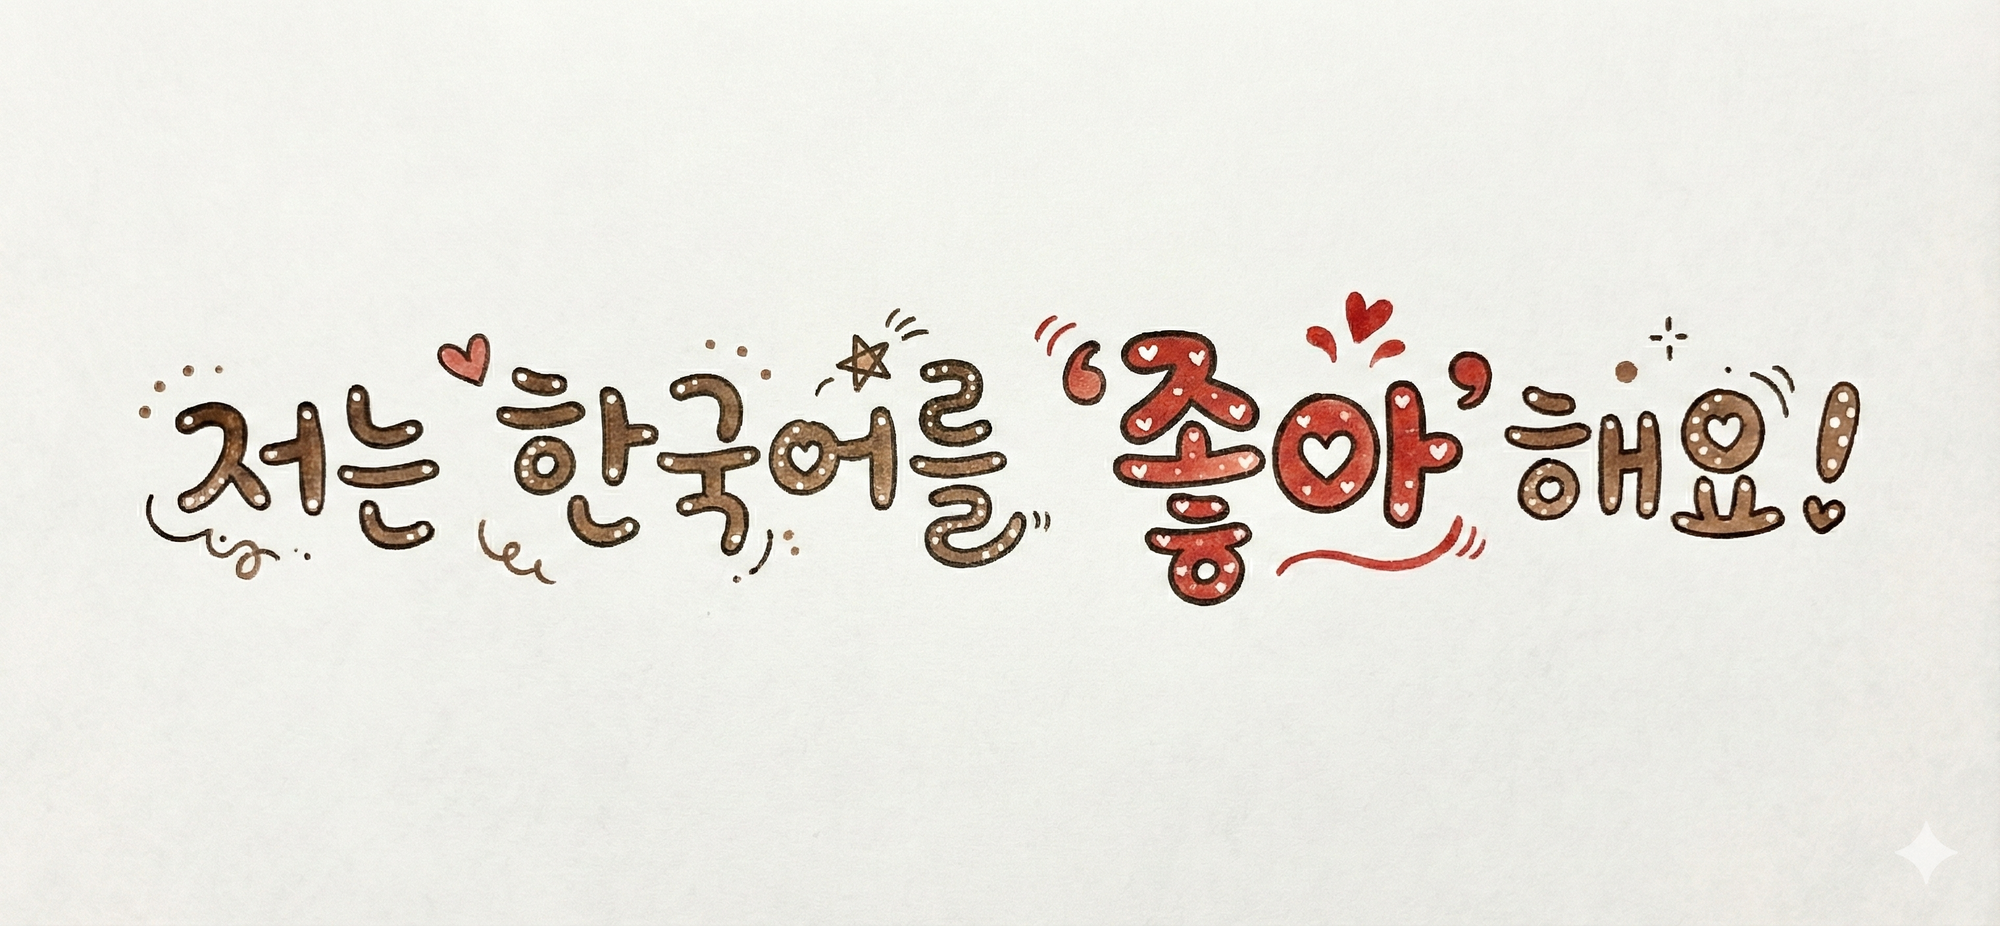 저는 한국어를 ‘좋아’해요!